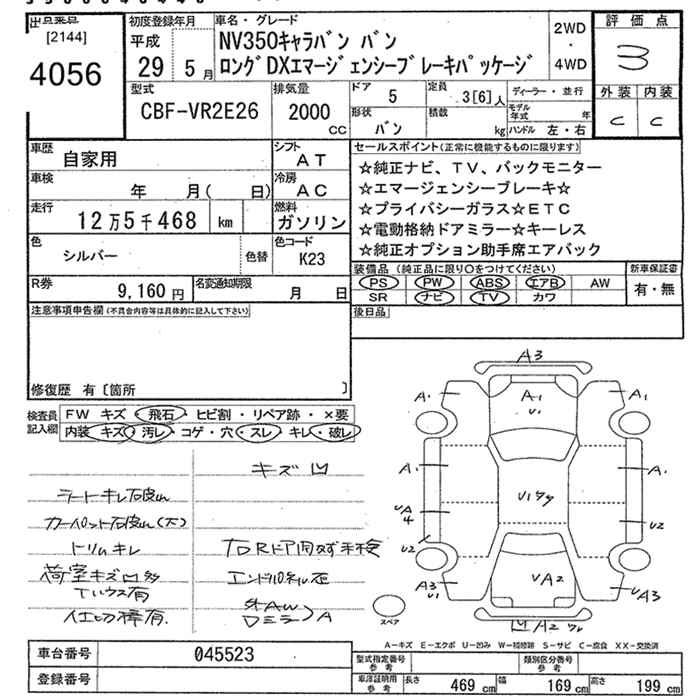 出品番号
[2144]
4056
初度登録年月
平成
29 5月
車名・グレード
NV350キャラバン バン
ロングDXエマージェンシーブレーキパッケージ
2WD
・
4WD
評価点
3
外装 内装
C C
型式
CBF-VR2E26
排気量
2000
CC
ドア
5
定員
3[6]人
ディーラー・並行
モデル年式 年
形状
バン
積載
kg
ハンドル 左・右
車歴
自家用
シフト
AT
車検
年 月( 日)
冷房
AC
走行
12万5千468 km
燃料
ガソリン
色
シルバー
色替
色コード
K23
R券
9,160円
名変通知期限
月 日
セールスポイント(正常に機能するものに限ります)
☆純正ナビ、TV、バックモニター
☆エマージェンシーブレーキ☆
☆プライバシーガラス☆ETC
☆電動格納ドアミラー☆キーレス
☆純正オプション助手席エアバック
装備品 (純正品に限り○をつけてください)
PS PW ABS エアB AW
SR ナビ TV カワ
新車保証書
有・無
後日品
注意事項申告欄(不具合内容等は具体的に記入して下さい)
修復歴 有〔箇所 〕
検査員
記入欄
FW キズ・飛石・ヒビ割・リペア跡・×要
内装 キズ・汚レ・コゲ・穴・スレ・キレ・破レ
キズ凹
シートキレ破れ
カーペット破れ(大)
トリムキレ
荷室キズ凹多
Tハウス有
右Rドア開かず手検
A3
A1
U1
A1
A1
A1
A1
UA
4
U2
U2
A3
U1
UA2
UA3
A2
スペア
A-キズ E-エクボ U-凹み W-補修跡 S-サビ C-腐食 XX-交換済
車台番号 045523
登録番号
型式指定番号
参考
類別区分番号
参考
車庫証明用
参考
長さ 469cm 幅 169cm 高さ 199cm